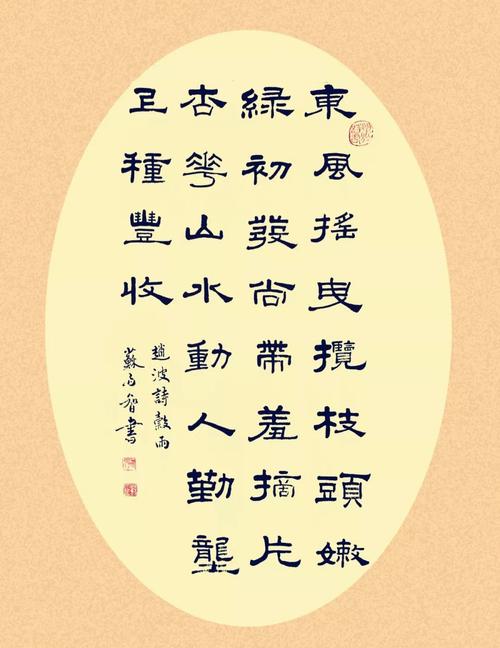 東風摇曳攬枝頭嫩
緑初發尚帶羞摘片
杏華山水動人勤壟
正種豐收
趙波詩穀雨
蘇智書